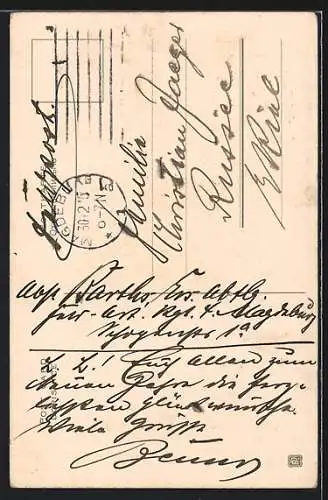 Feldpost.
MAGDEBURG
30.12.15
6-7 N
Familie
Christian Jaeger
Russee
b/ Kiel
Abs. Barths, Ers. Abtlg.
Feld-Art. Rgt. 4. Magdeburg
1a
L. L.! Euch Allen zum
neuen Jahre die herz-
lichsten Glückwünsche.
Viele Grüsse